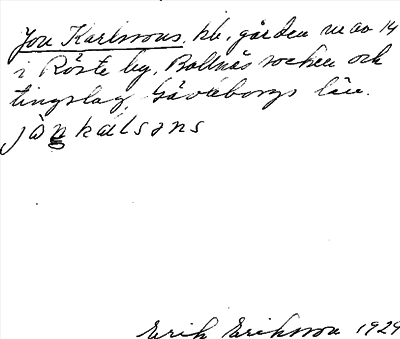 Jon Karlssons, kb, gården nr av 14
i Röste by, Bollnäs socken och
tingslag, Gävleborgs län.
jòn kálsans
Erik Eriksson 1929